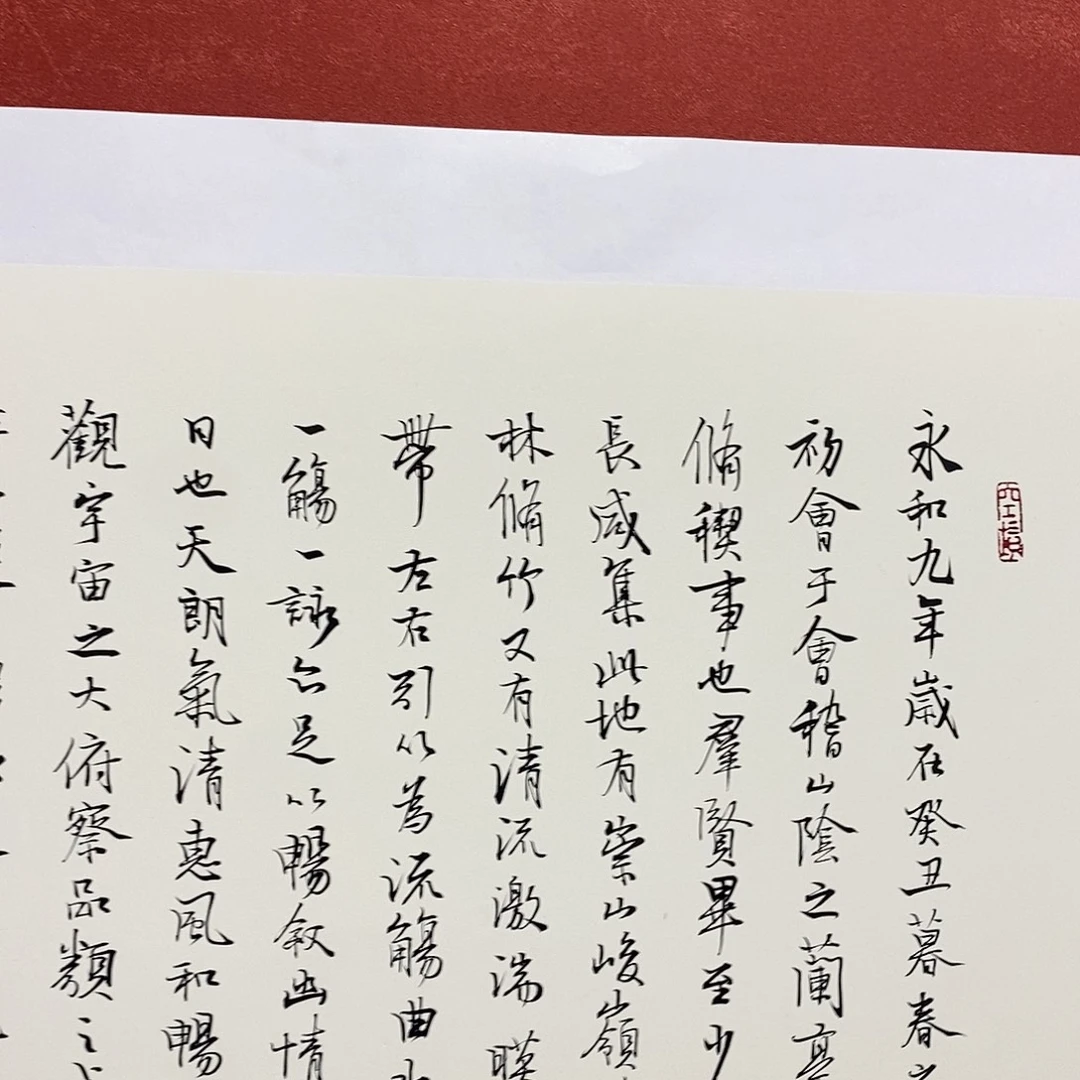 永和九年歲在癸丑暮春
初會于會稽山陰之蘭亭
脩稧事也羣賢畢至少
長咸集此地有崇山峻嶺
林脩竹又有清流激湍暎
帶左右引以為流觴曲水
一觴一詠亦足以暢敘幽情
日也天朗氣清惠風和暢
觀宇宙之大俯察品類之